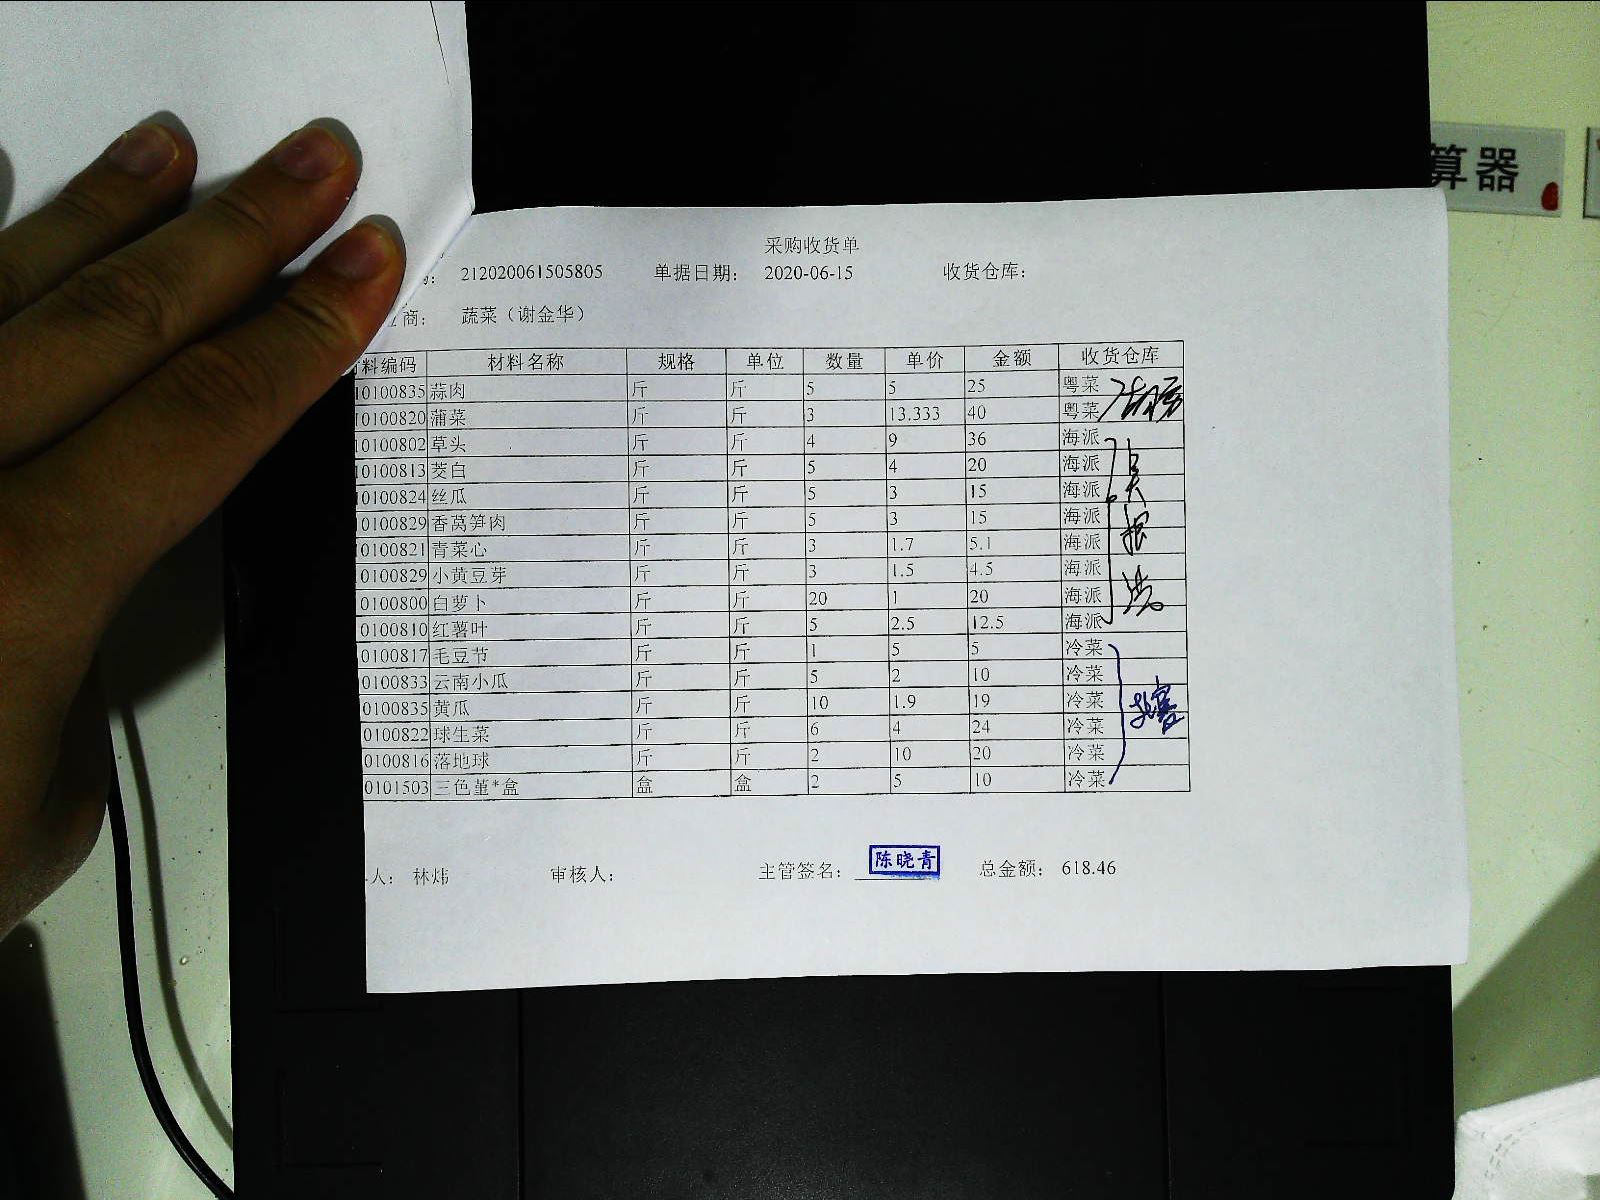 算器
采购收货单
212020061505805 单据日期: 2020-06-15 收货仓库:
商: 蔬菜（谢金华）
料编码 材料名称 规格 单位 数量 单价 金额 收货仓库
0100835 蒜肉 斤 斤 5 5 25 粤菜
0100820 蒲菜 斤 斤 3 13.333 40 粤菜
0100802 草头 斤 斤 4 9 36 海派
0100813 茭白 斤 斤 5 4 20 海派
0100824 丝瓜 斤 斤 5 3 15 海派
0100829 香莴笋肉 斤 斤 5 3 15 海派
0100821 青菜心 斤 斤 3 1.7 5.1 海派
0100829 小黄豆芽 斤 斤 3 1.5 4.5 海派
0100800 白萝卜 斤 斤 20 1 20 海派
0100810 红薯叶 斤 斤 5 2.5 12.5 海派
0100817 毛豆节 斤 斤 1 5 5 冷菜
0100833 云南小瓜 斤 斤 5 2 10 冷菜
0100835 黄瓜 斤 斤 10 1.9 19 冷菜
0100822 球生菜 斤 斤 6 4 24 冷菜
0100816 落地球 斤 斤 2 10 20 冷菜
0101503 三色堇*盒 盒 盒 2 5 10 冷菜
人: 林炜 审核人: 主管签名: 陈晓青 总金额: 618.46